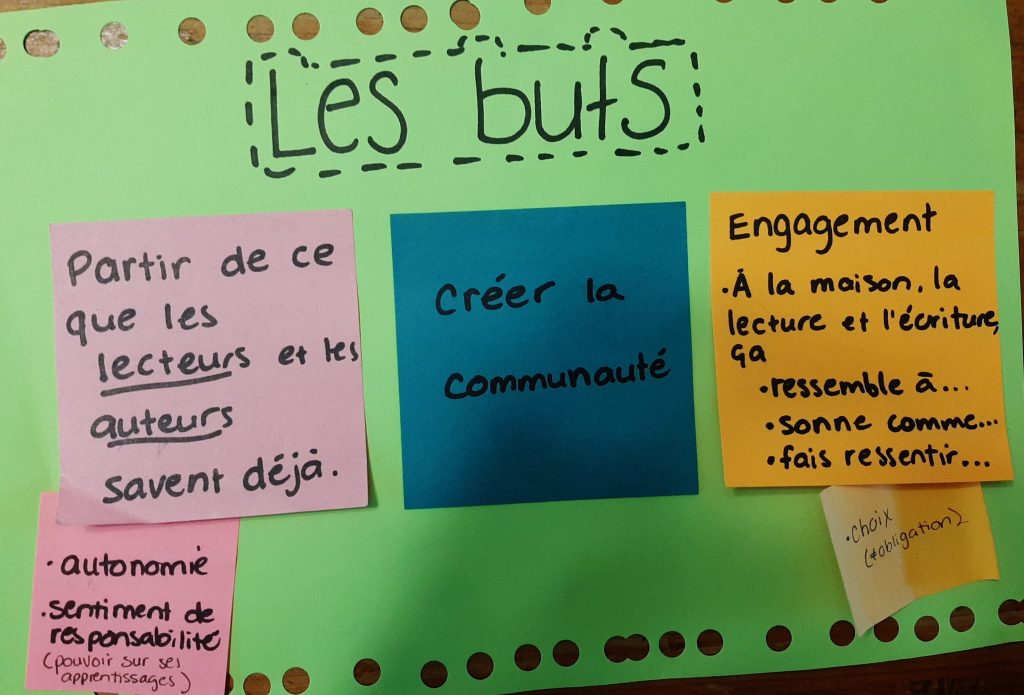 Les buts
Partir de ce
que les
lecteurs et les
auteurs
savent déjà.
• autonomie
• sentiment de
responsabilité
(pouvoir sur ses
apprentissages)
Créer la
communauté
Engagement
• À la maison, la
lecture et l'écriture,
ça
• ressemble à...
• sonne comme...
• fais ressentir...
• choix
(≠obligation)